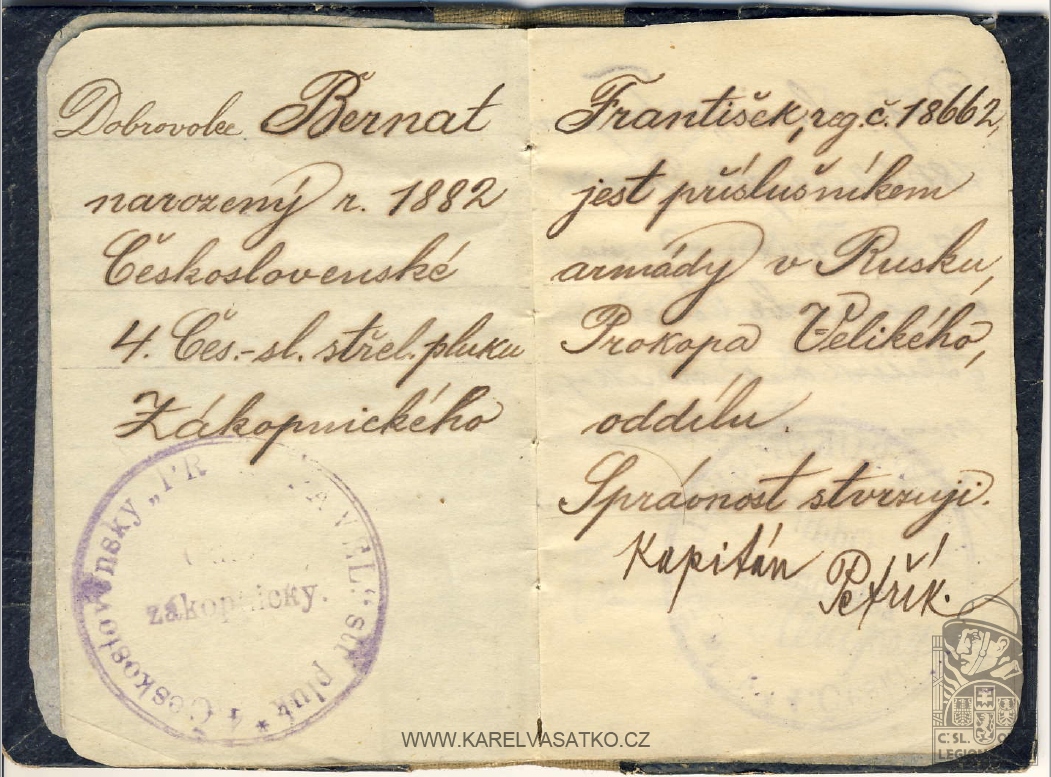 Dobrovolec Bernat František, reg. č. 18662,
narozený r. 1882 jest příslušníkem
Československé armády v Rusku,
4. Čes.-sl. střel. pluku Prokopa Velikého,
Zákopnického oddílu.
Správnost stvrzuji.
Kapitán Petřík.
* 4 Československý „PR A VEL.“ stř pluk
zákopnický.
WWW.KARELVASATKO.CZ
Č. SL. O
LEGION